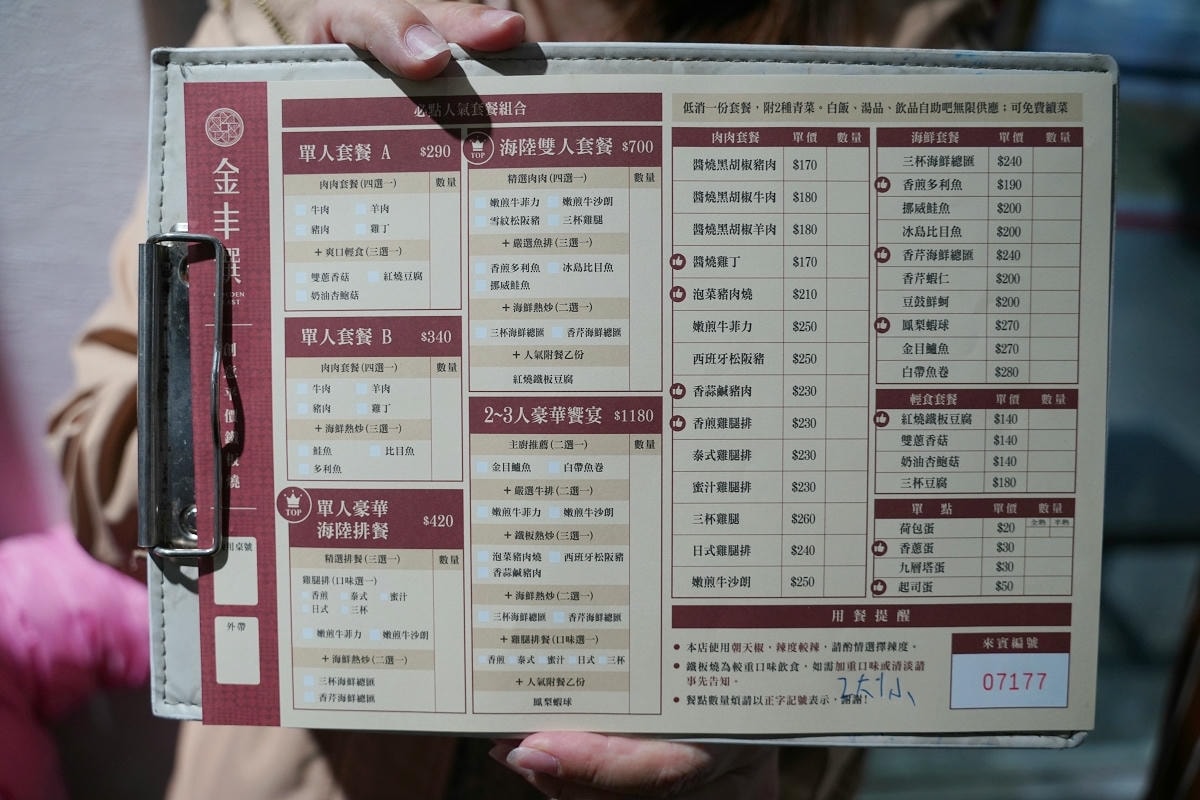 金丰
創意平價鐵板燒
用桌號
外帶
必點人氣套餐組合
單人套餐 A $290
肉肉套餐(四選一) 數量
牛肉 羊肉
豬肉 雞丁
+爽口輕食(三選一)
雙蔥香菇 紅燒豆腐
奶油杏鮑菇
單人套餐 B $340
肉肉套餐(四選一) 數量
牛肉 羊肉
豬肉 雞丁
+海鮮熱炒(三選一)
鮭魚 比目魚
多利魚
TOP
單人豪華
海陸排餐 $420
精選排餐(三選一) 數量
雞腿排(口味選一)
香煎 泰式 蜜汁
日式 三杯
嫩煎牛菲力 嫩煎牛沙朗
+海鮮熱炒(二選一)
三杯海鮮總匯
香芹海鮮總匯
TOP
海陸雙人套餐 $700
精選肉肉(四選一) 數量
嫩煎牛菲力 嫩煎牛沙朗
雪紋松阪豬 三杯雞腿
+嚴選魚排(三選一)
香煎多利魚 冰島比目魚
挪威鮭魚
+海鮮熱炒(二選一)
三杯海鮮總匯 香芹海鮮總匯
+人氣附餐乙份
紅燒鐵板豆腐
2~3人豪華饗宴 $1180
主廚推薦(二選一) 數量
金目鱸魚 白帶魚卷
+嚴選牛排(二選一)
嫩煎牛菲力 嫩煎牛沙朗
+鐵板熱炒(三選一)
泡菜豬肉燒 西班牙松阪豬
香蒜鹹豬肉
+海鮮熱炒(二選一)
三杯海鮮總匯 香芹海鮮總匯
+雞腿排餐(口味選一)
香煎 泰式 蜜汁 日式 三杯
+人氣附餐乙份
鳳梨蝦球
低消一份套餐，附2種青菜。白飯、湯品、飲品自助吧無限供應；可免費續菜
肉肉套餐 單價 數量
醬燒黑胡椒豬肉 $170
醬燒黑胡椒牛肉 $180
醬燒黑胡椒羊肉 $180
醬燒雞丁 $170
泡菜豬肉燒 $210
嫩煎牛菲力 $250
西班牙松阪豬 $250
香蒜鹹豬肉 $230
香煎雞腿排 $230
泰式雞腿排 $230
蜜汁雞腿排 $230
三杯雞腿 $260
日式雞腿排 $240
嫩煎牛沙朗 $250
海鮮套餐 單價 數量
三杯海鮮總匯 $240
香煎多利魚 $190
挪威鮭魚 $200
冰島比目魚 $200
香芹海鮮總匯 $240
香芹蝦仁 $200
豆鼓鮮蚵 $200
鳳梨蝦球 $270
金目鱸魚 $270
白帶魚卷 $280
輕食套餐 單價 數量
紅燒鐵板豆腐 $140
雙蔥香菇 $140
奶油杏鮑菇 $140
三杯豆腐 $180
單點 單價 數量
荷包蛋 $20 全熟 半熟
香蔥蛋 $30
九層塔蛋 $30
起司蛋 $50
用餐提醒
● 本店使用朝天椒，辣度較辣，請酌情選擇辣度。
● 鐵板燒為較重口味飲食，如需加重口味或清淡請
事先告知。
● 餐點數量煩請以正字記號表示，謝謝!
來賓編號
07177